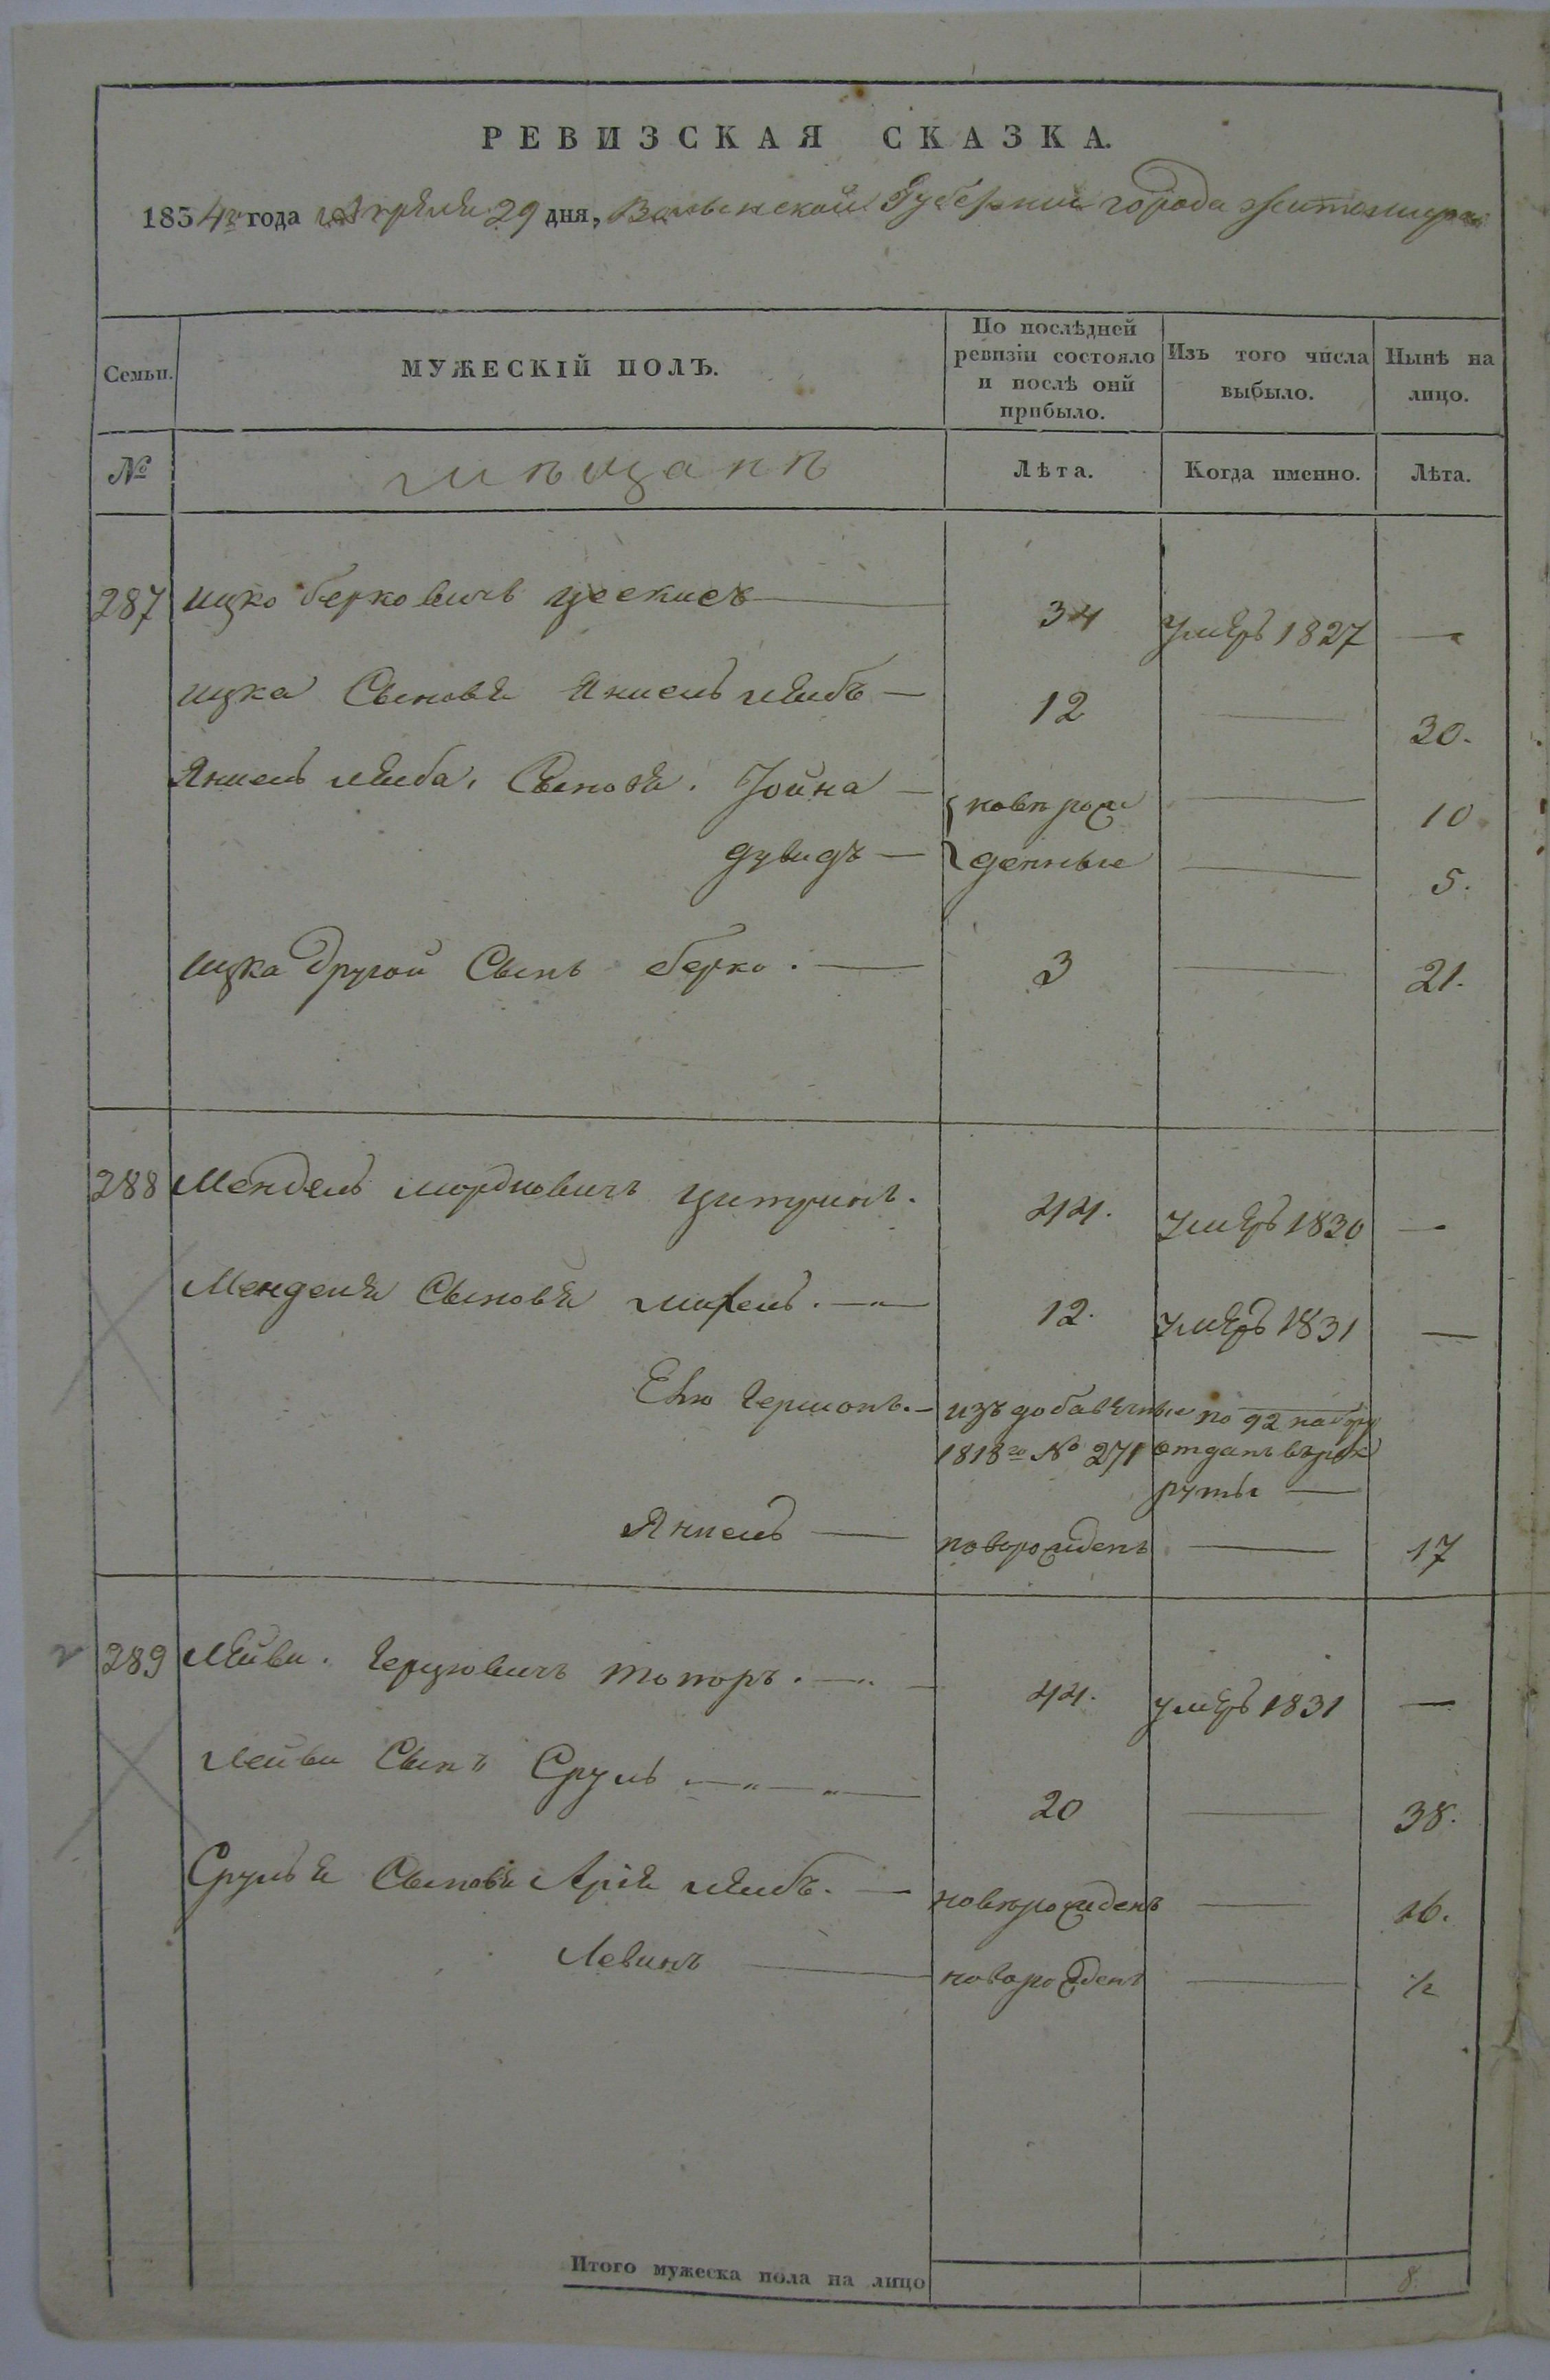 РЕВИЗСКАЯ СКАЗКА.
1834го года Апреля 29 дня, Волынской Губернии города Житомира
Семьи. МУЖЕСКІЙ ПОЛЪ. По послѣдней ревизіи состояло и послѣ оной прибыло. Изъ того числа выбыло. Нынѣ на лицо.
№ Лѣта. Когда именно. Лѣта.
287 Ицко Берковичъ 34 умеръ 1827 —
Ицка Сыновя Анцель Лейбъ — 12 — 30.
Анцель Лейба. Сыновя. Іойна — новорож 10
Дувидъ — денные — 5.
Ицка Другой Сынъ Берко. — 3 — 21.
288 Мендель Мордковичъ Цитринъ. 44. умеръ 1830 —
Менделя Сыновя Михель. — 12. умеръ 1831 —
Ейно Гершонъ. — изъ добавочныхъ по 92 набору
1818го № 271 отданъ в рек
руты —
Анцель — новорожденъ — 17
289 Лейви. Герцковичъ Топоръ. — 44. умеръ 1831 —
Лейви Сынъ Сруль — 20 — 38.
Сруля Сыновя Арія Лейбъ. — новорожденъ — 16.
Левинъ — новорожденъ — 1/2
Итого мужеска пола на лицо 8.